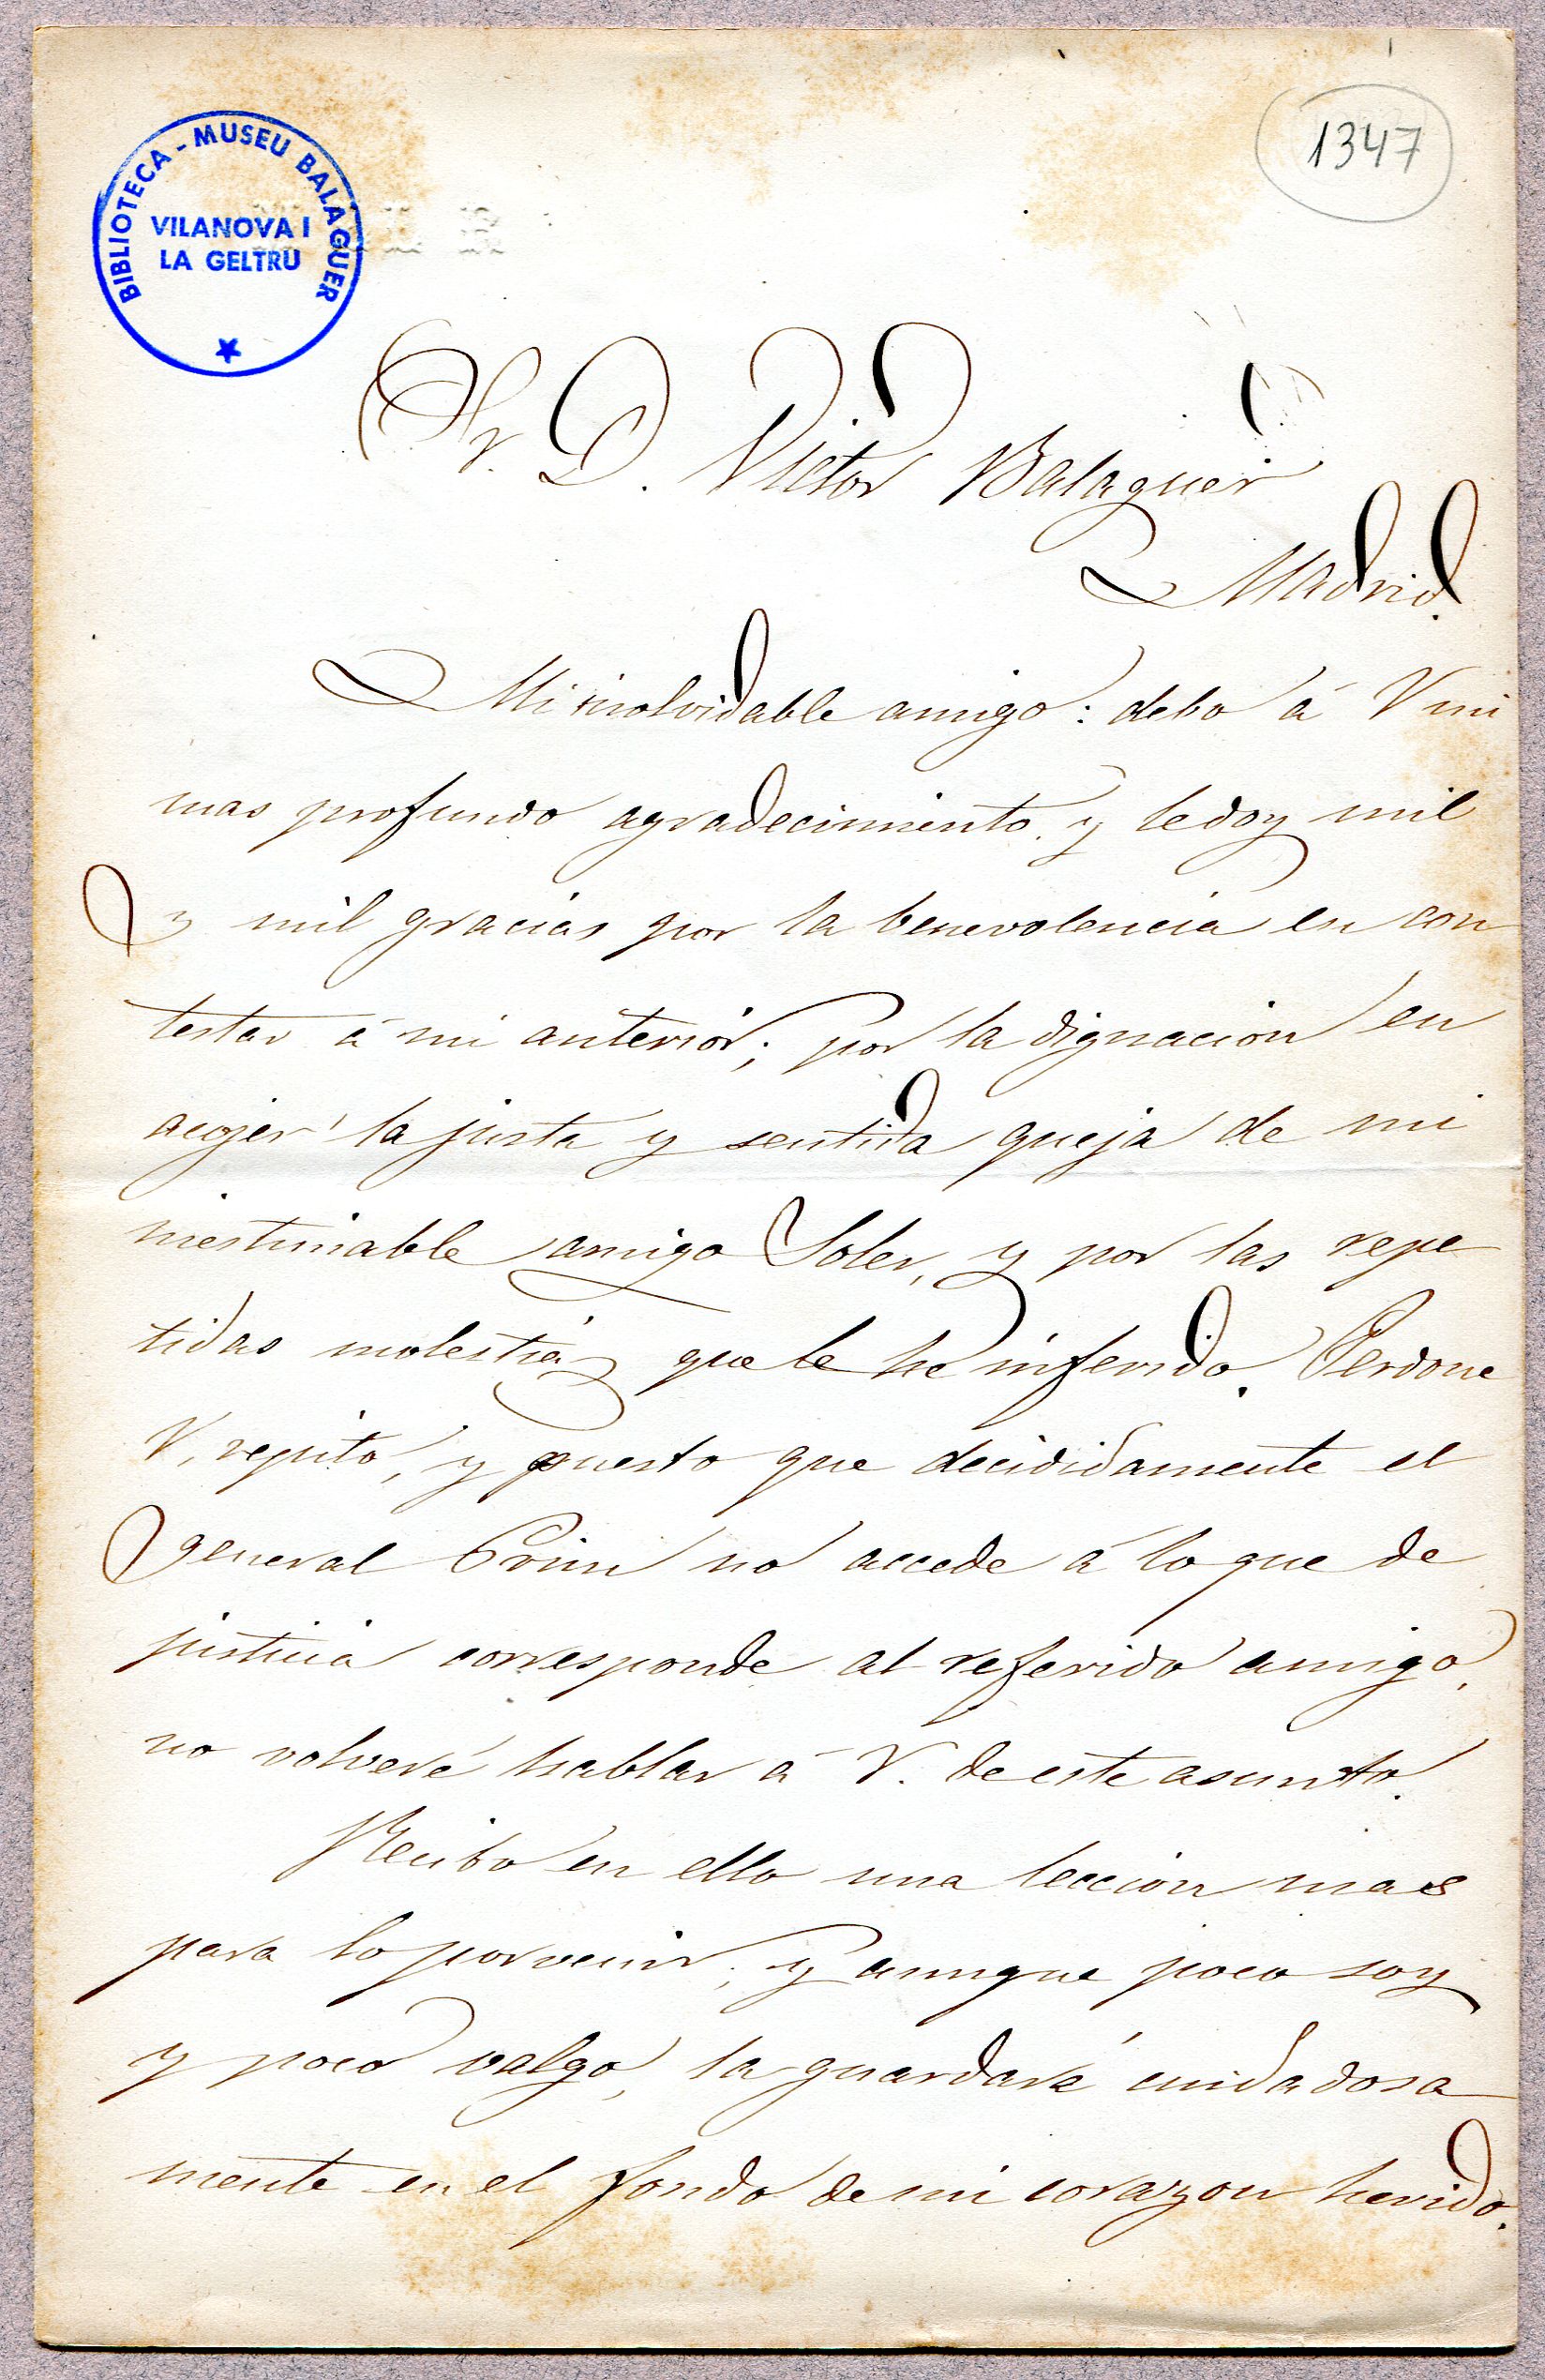 1347
BIBLIOTECA - MUSEU BALAGUER
VILANOVA I
LA GELTRÚ
Sr. D. Victor Balaguer
Madrid.
Mi inolvidable amigo: debo á V mi
mas profundo agradecimiento y le doy mil
y mil gracias por la benevolencia en con
testar á mi anterior; por la dignacion en
acojer la justa y sentida queja de mi
inestimable amigo Soler, y por las repe
tidas molestias que le he inferido. Perdone
V, repito, y puesto que decididamente el
general Prim no accede á lo que de
justicia corresponde al referido amigo,
no volveré hablar á V. de este asunto.
Recibo en ello una leccion mas
para lo porvenir; y aunque poco soy
y poco valgo, la guardaré cuidadosa
mente en el fondo de mi corazon herido.